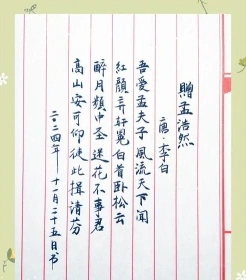 贈孟浩然
唐·李白
吾愛孟夫子風流天下聞
紅顏弃軒冕白首卧松云
醉月頻中圣迷花不事君
高山安可仰徒此揖清芬
二〇二四年十一月二十五日书